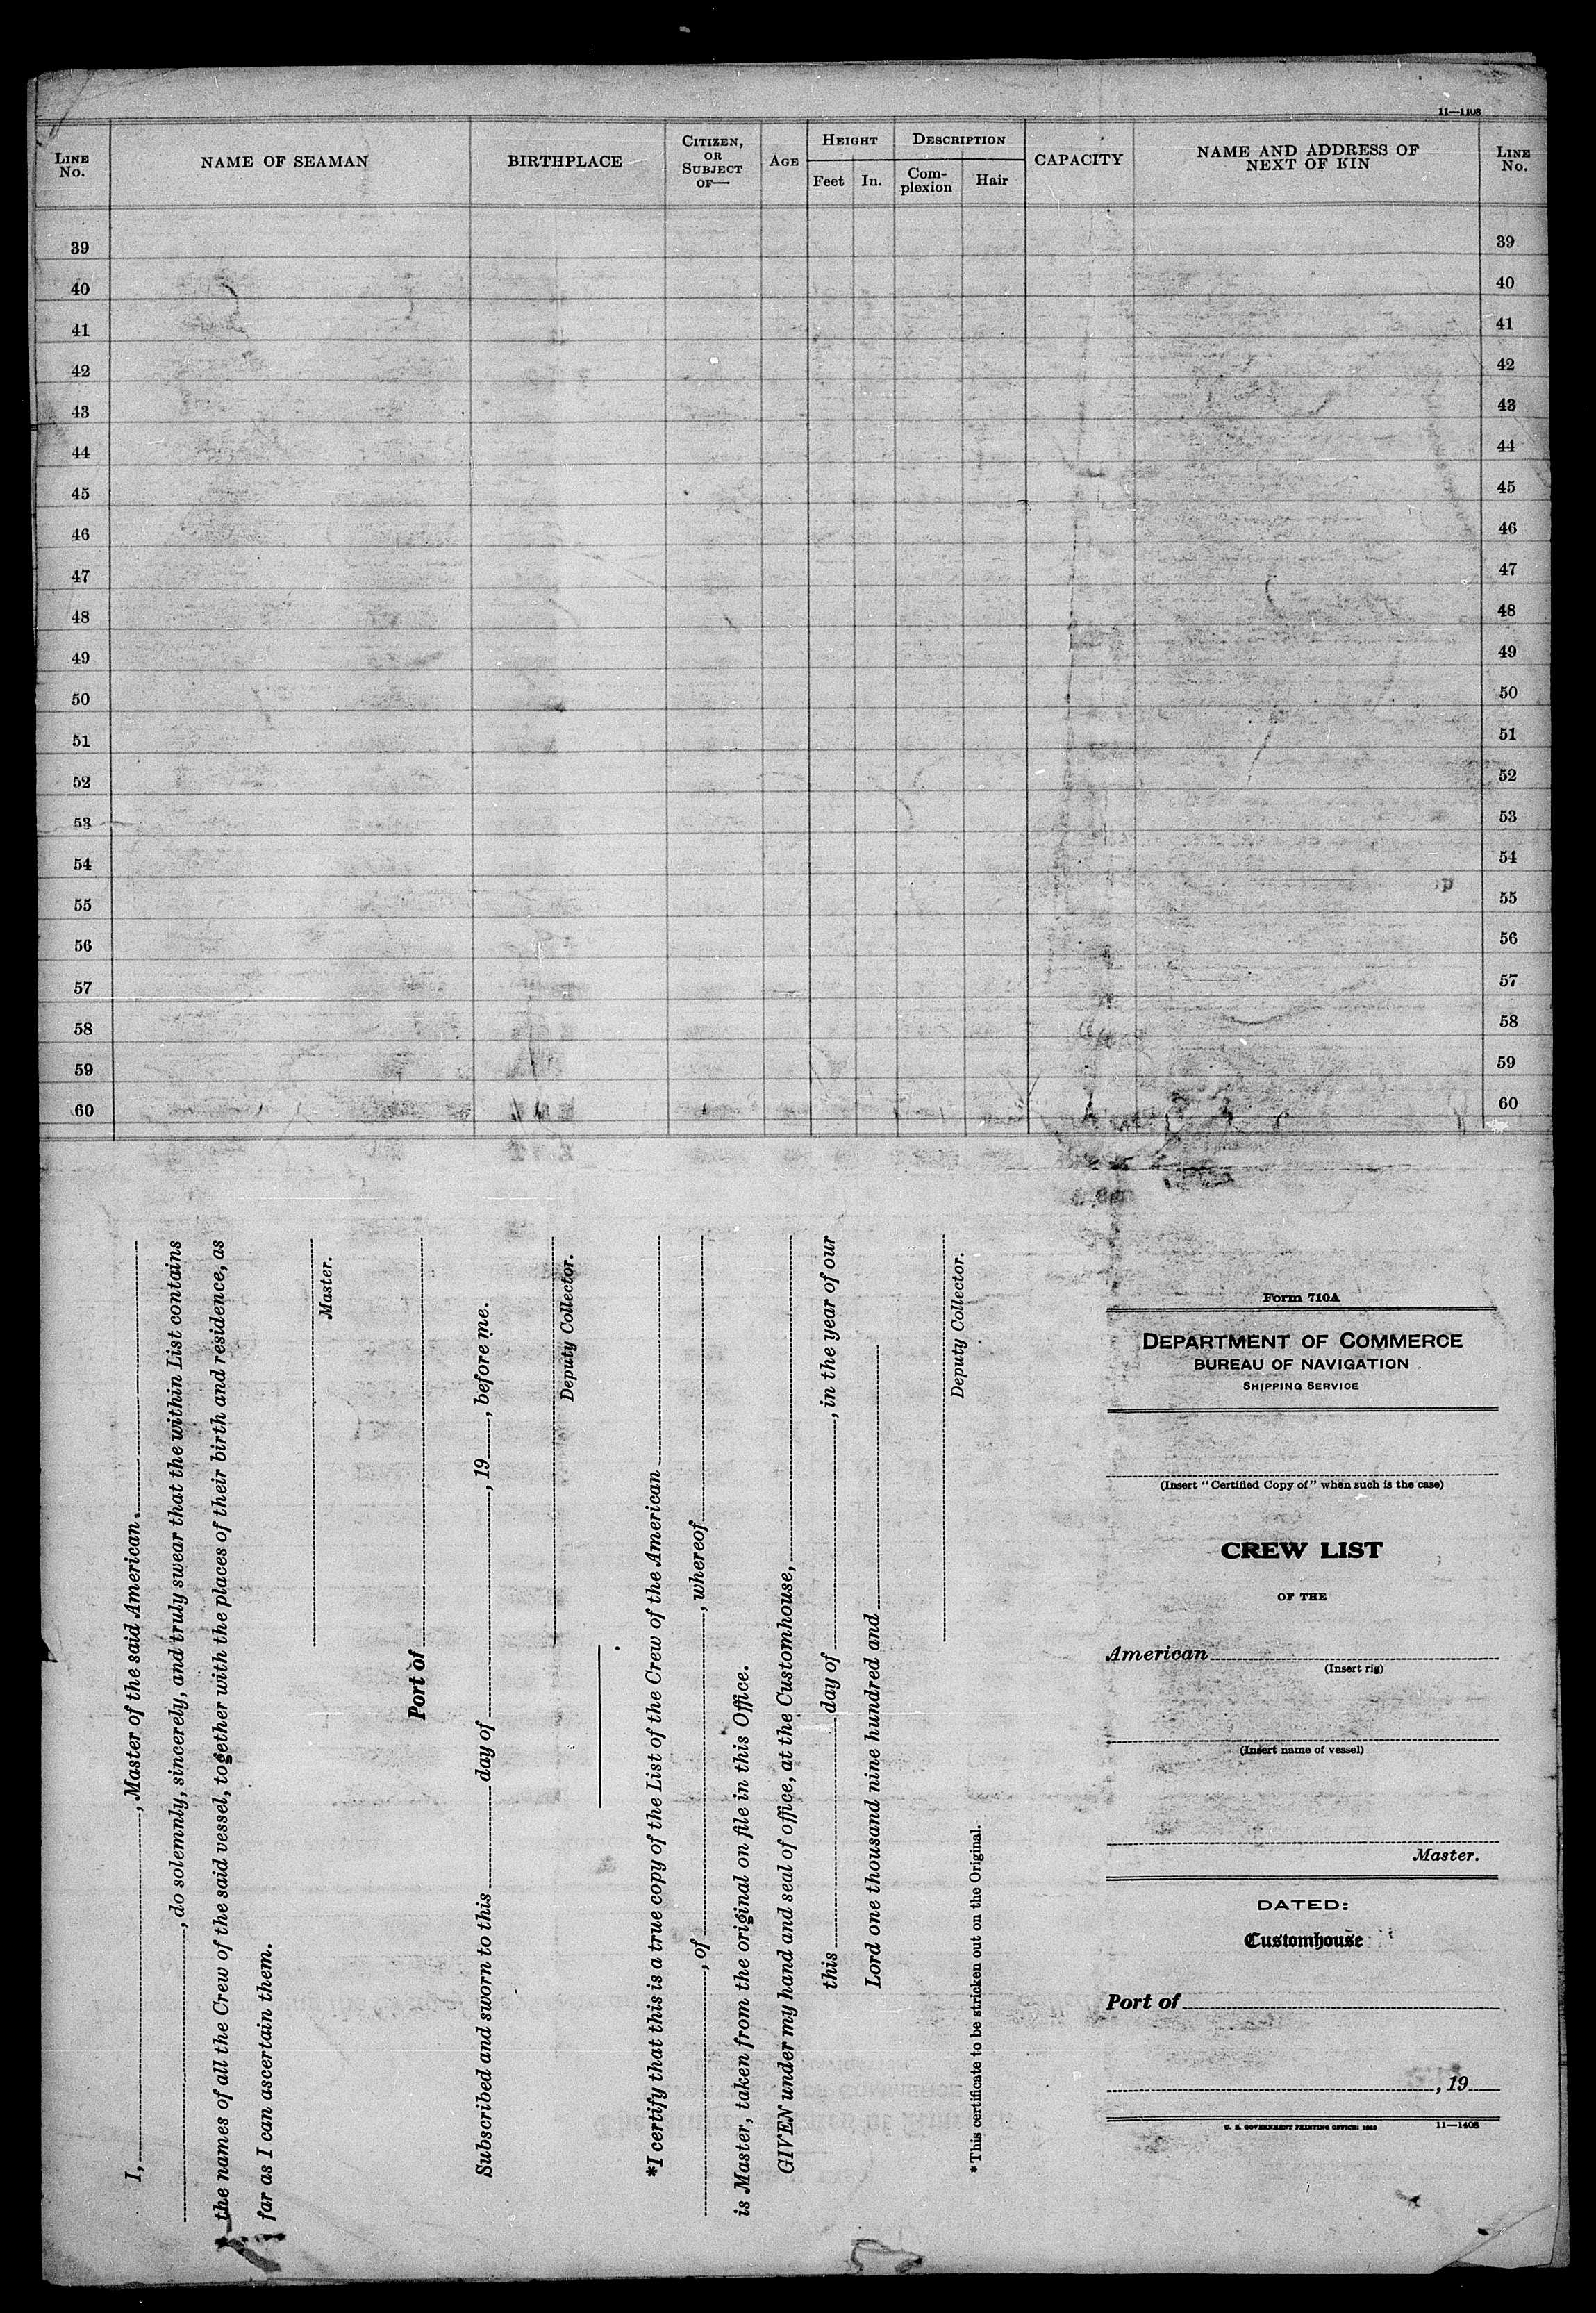 11—1408
LINE No. NAME OF SEAMAN BIRTHPLACE CITIZEN, OR SUBJECT OF— AGE HEIGHT Feet In. DESCRIPTION Complexion Hair CAPACITY NAME AND ADDRESS OF NEXT OF KIN LINE No.
39 39
40 40
41 41
42 42
43 43
44 44
45 45
46 46
47 47
48 48
49 49
50 50
51 51
52 52
53 53
54 54
55 55
56 56
57 57
58 58
59 59
60 60
I, , Master of the said American
, do solemnly, sincerely, and truly swear that the within List contains
the names of all the Crew of the said vessel, together with the places of their birth and residence, as
far as I can ascertain them.
Master.
Port of
Subscribed and sworn to this day of , 19 , before me.
Deputy Collector.
*I certify that this is a true copy of the List of the Crew of the American
, of , whereof
is Master, taken from the original on file in this Office.
GIVEN under my hand and seal of office, at the Customhouse,
this day of , in the year of our
Lord one thousand nine hundred and
Deputy Collector.
*This certificate to be stricken out on the Original.
Form 710A
DEPARTMENT OF COMMERCE
BUREAU OF NAVIGATION
SHIPPING SERVICE
(Insert "Certified Copy of" when such is the case)
CREW LIST
OF THE
American
(Insert rig)
(Insert name of vessel)
Master.
DATED:
Customhouse
Port of
, 19
U. S. GOVERNMENT PRINTING OFFICE: 11—1408